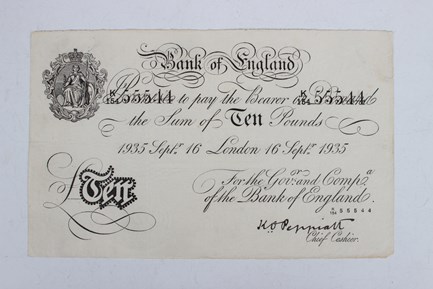 Bank of England
K/184 55544 K/184 55544
Promise to pay the Bearer on Demand
the Sum of Ten Pounds
1935 Sept. 16 London 16 Sept. 1935
For the Govr. and Compa.
£Ten of the Bank of England.
K/184 55544
K.O. Peppiatt
Chief Cashier.